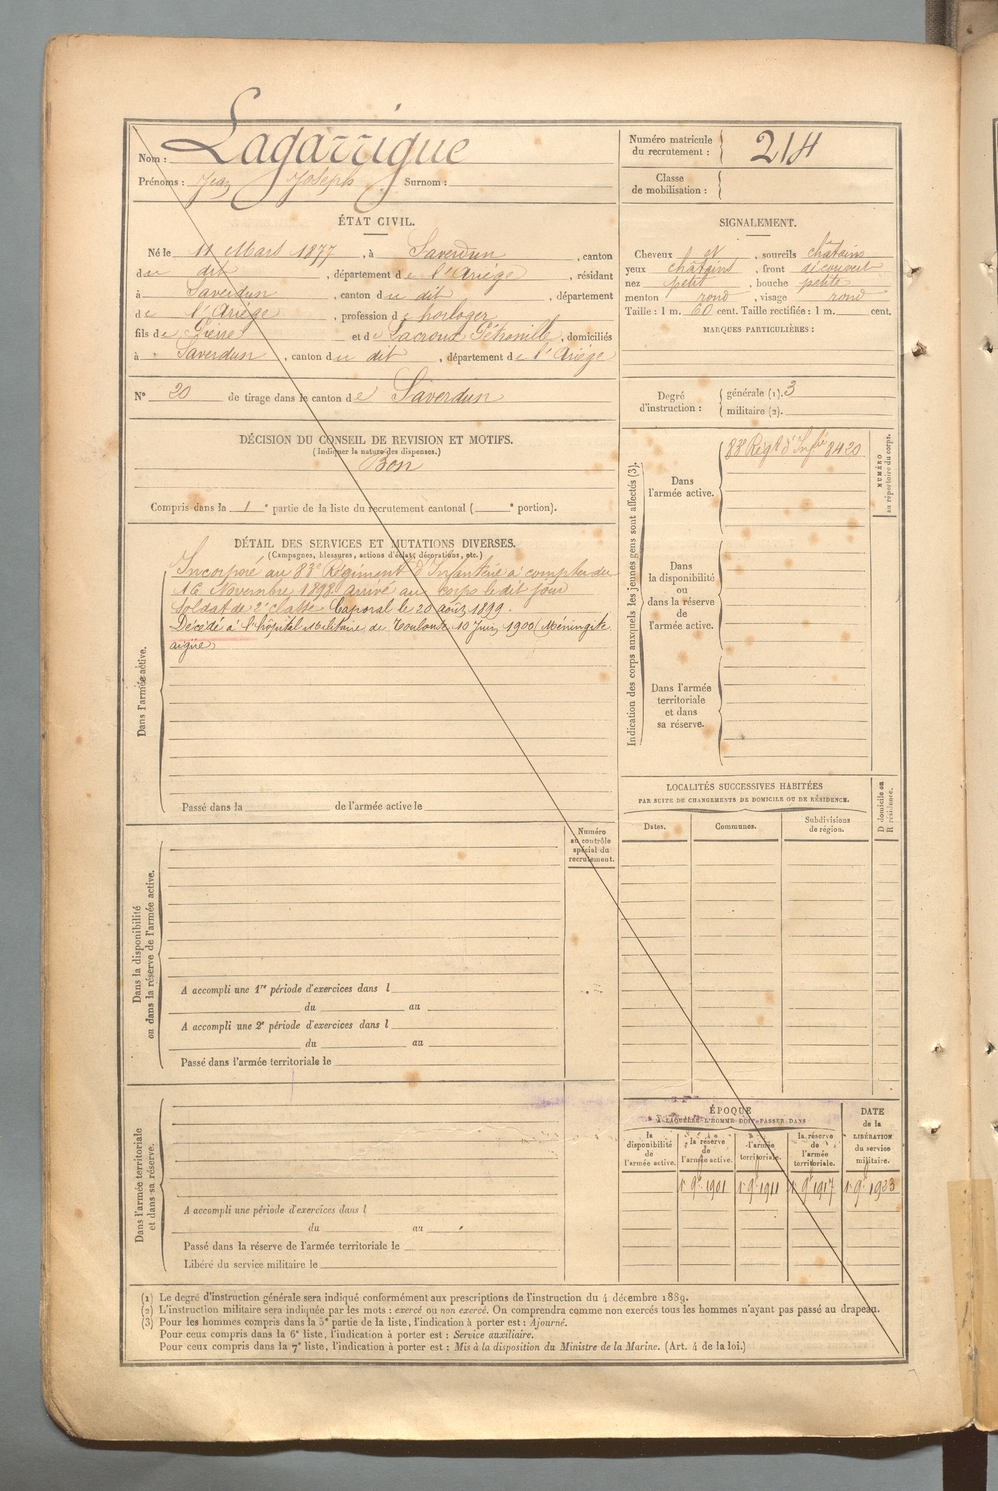 Nom : Lagarrigue
Prénoms : Jean Joseph Surnom :
Numéro matricule du recrutement : 214
Classe de mobilisation :
ÉTAT CIVIL.
Né le 11 Mars 1877, à Saverdun, canton
du dit, département de l'Ariége, résidant
à Saverdun, canton du dit, département
de l'Ariége, profession de horloger
fils de Pierre et de Lacroux Pétronille, domiciliés
à Saverdun, canton du dit, département de l'Ariége
N° 20 de tirage dans le canton de Saverdun
SIGNALEMENT.
Cheveux et, sourcils châtains
yeux châtains, front découvert
nez petit, bouche petite
menton rond, visage rond
Taille : 1 m. 60 cent. Taille rectifiée : 1 m. cent.
MARQUES PARTICULIÈRES :
Degré d'instruction : générale (1). 3
militaire (2).
DÉCISION DU CONSEIL DE REVISION ET MOTIFS.
(Indiquer la nature des dispenses.)
Bon
Compris dans la 1e partie de la liste du recrutement cantonal ( e portion).
DÉTAIL DES SERVICES ET MUTATIONS DIVERSES.
(Campagnes, blessures, actions d'éclat, décorations, etc.)
Dans l'armée active.
Incorporé au 83e Régiment d'Infanterie à compter du
16 Novembre 1898. Arrivé au corps le dit jour
Soldat de 2e classe. Caporal le 20 août 1899.
Décédé à l'hôpital Militaire de Toulouse 10 Juin 1900 (Méningite
aigüe)
Passé dans la de l'armée active le
Indication des corps auxquels les jeunes gens sont affectés (3).
NUMÉRO au répertoire du corps.
Dans l'armée active.
83e Régt d'Infie 8420
Dans la disponibilité ou dans la réserve de l'armée active.
Dans l'armée territoriale et dans sa réserve.
LOCALITÉS SUCCESSIVES HABITÉES
PAR SUITE DE CHANGEMENTS DE DOMICILE OU DE RÉSIDENCE.
D domicile ou R résidence.
Dates. Communes. Subdivisions de région.
Numéro au contrôle spécial du recrutement.
Dans la disponibilité ou dans la réserve de l'armée active.
A accompli une 1re période d'exercices dans l
du au
A accompli une 2e période d'exercices dans l
du au
Passé dans l'armée territoriale le
Dans l'armée territoriale et dans sa réserve.
A accompli une période d'exercices dans l
du au
Passé dans la réserve de l'armée territoriale le
Libéré du service militaire le
ÉPOQUE
A LAQUELLE L'HOMME DOIT PASSER DANS
la disponibilité de l'armée active.
la réserve de l'armée active.
l'armée territoriale.
la réserve de l'armée territoriale.
DATE de la LIBÉRATION du service militaire.
1 9bre 1901 1 9bre 1911 1 9bre 1917 1 9bre 1923
(1) Le degré d'instruction générale sera indiqué conformément aux prescriptions de l'instruction du 4 décembre 1889.
(2) L'instruction militaire sera indiquée par les mots : exercé ou non exercé. On comprendra comme non exercés tous les hommes n'ayant pas passé au drapeau.
(3) Pour les hommes compris dans la 5e partie de la liste, l'indication à porter est : Ajourné.
Pour ceux compris dans la 6e liste, l'indication à porter est : Service auxiliaire.
Pour ceux compris dans la 7e liste, l'indication à porter est : Mis à la disposition du Ministre de la Marine. (Art. 4 de la loi.)